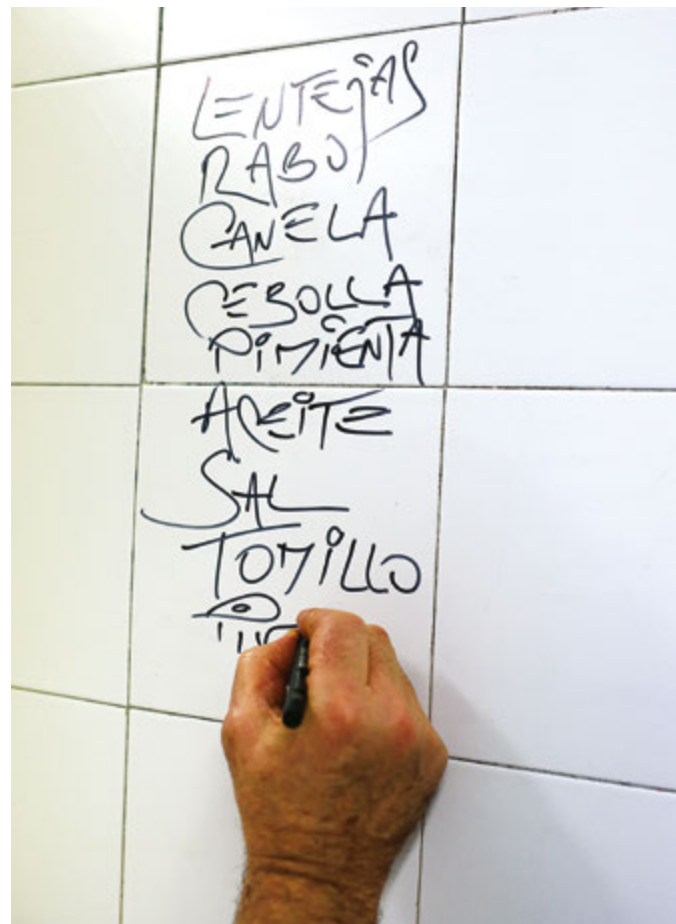 LENTEjAS
RABO
CANELA
CEBOLLA
PiMiENTA
ACEiTE
SAL
TOMiLLO